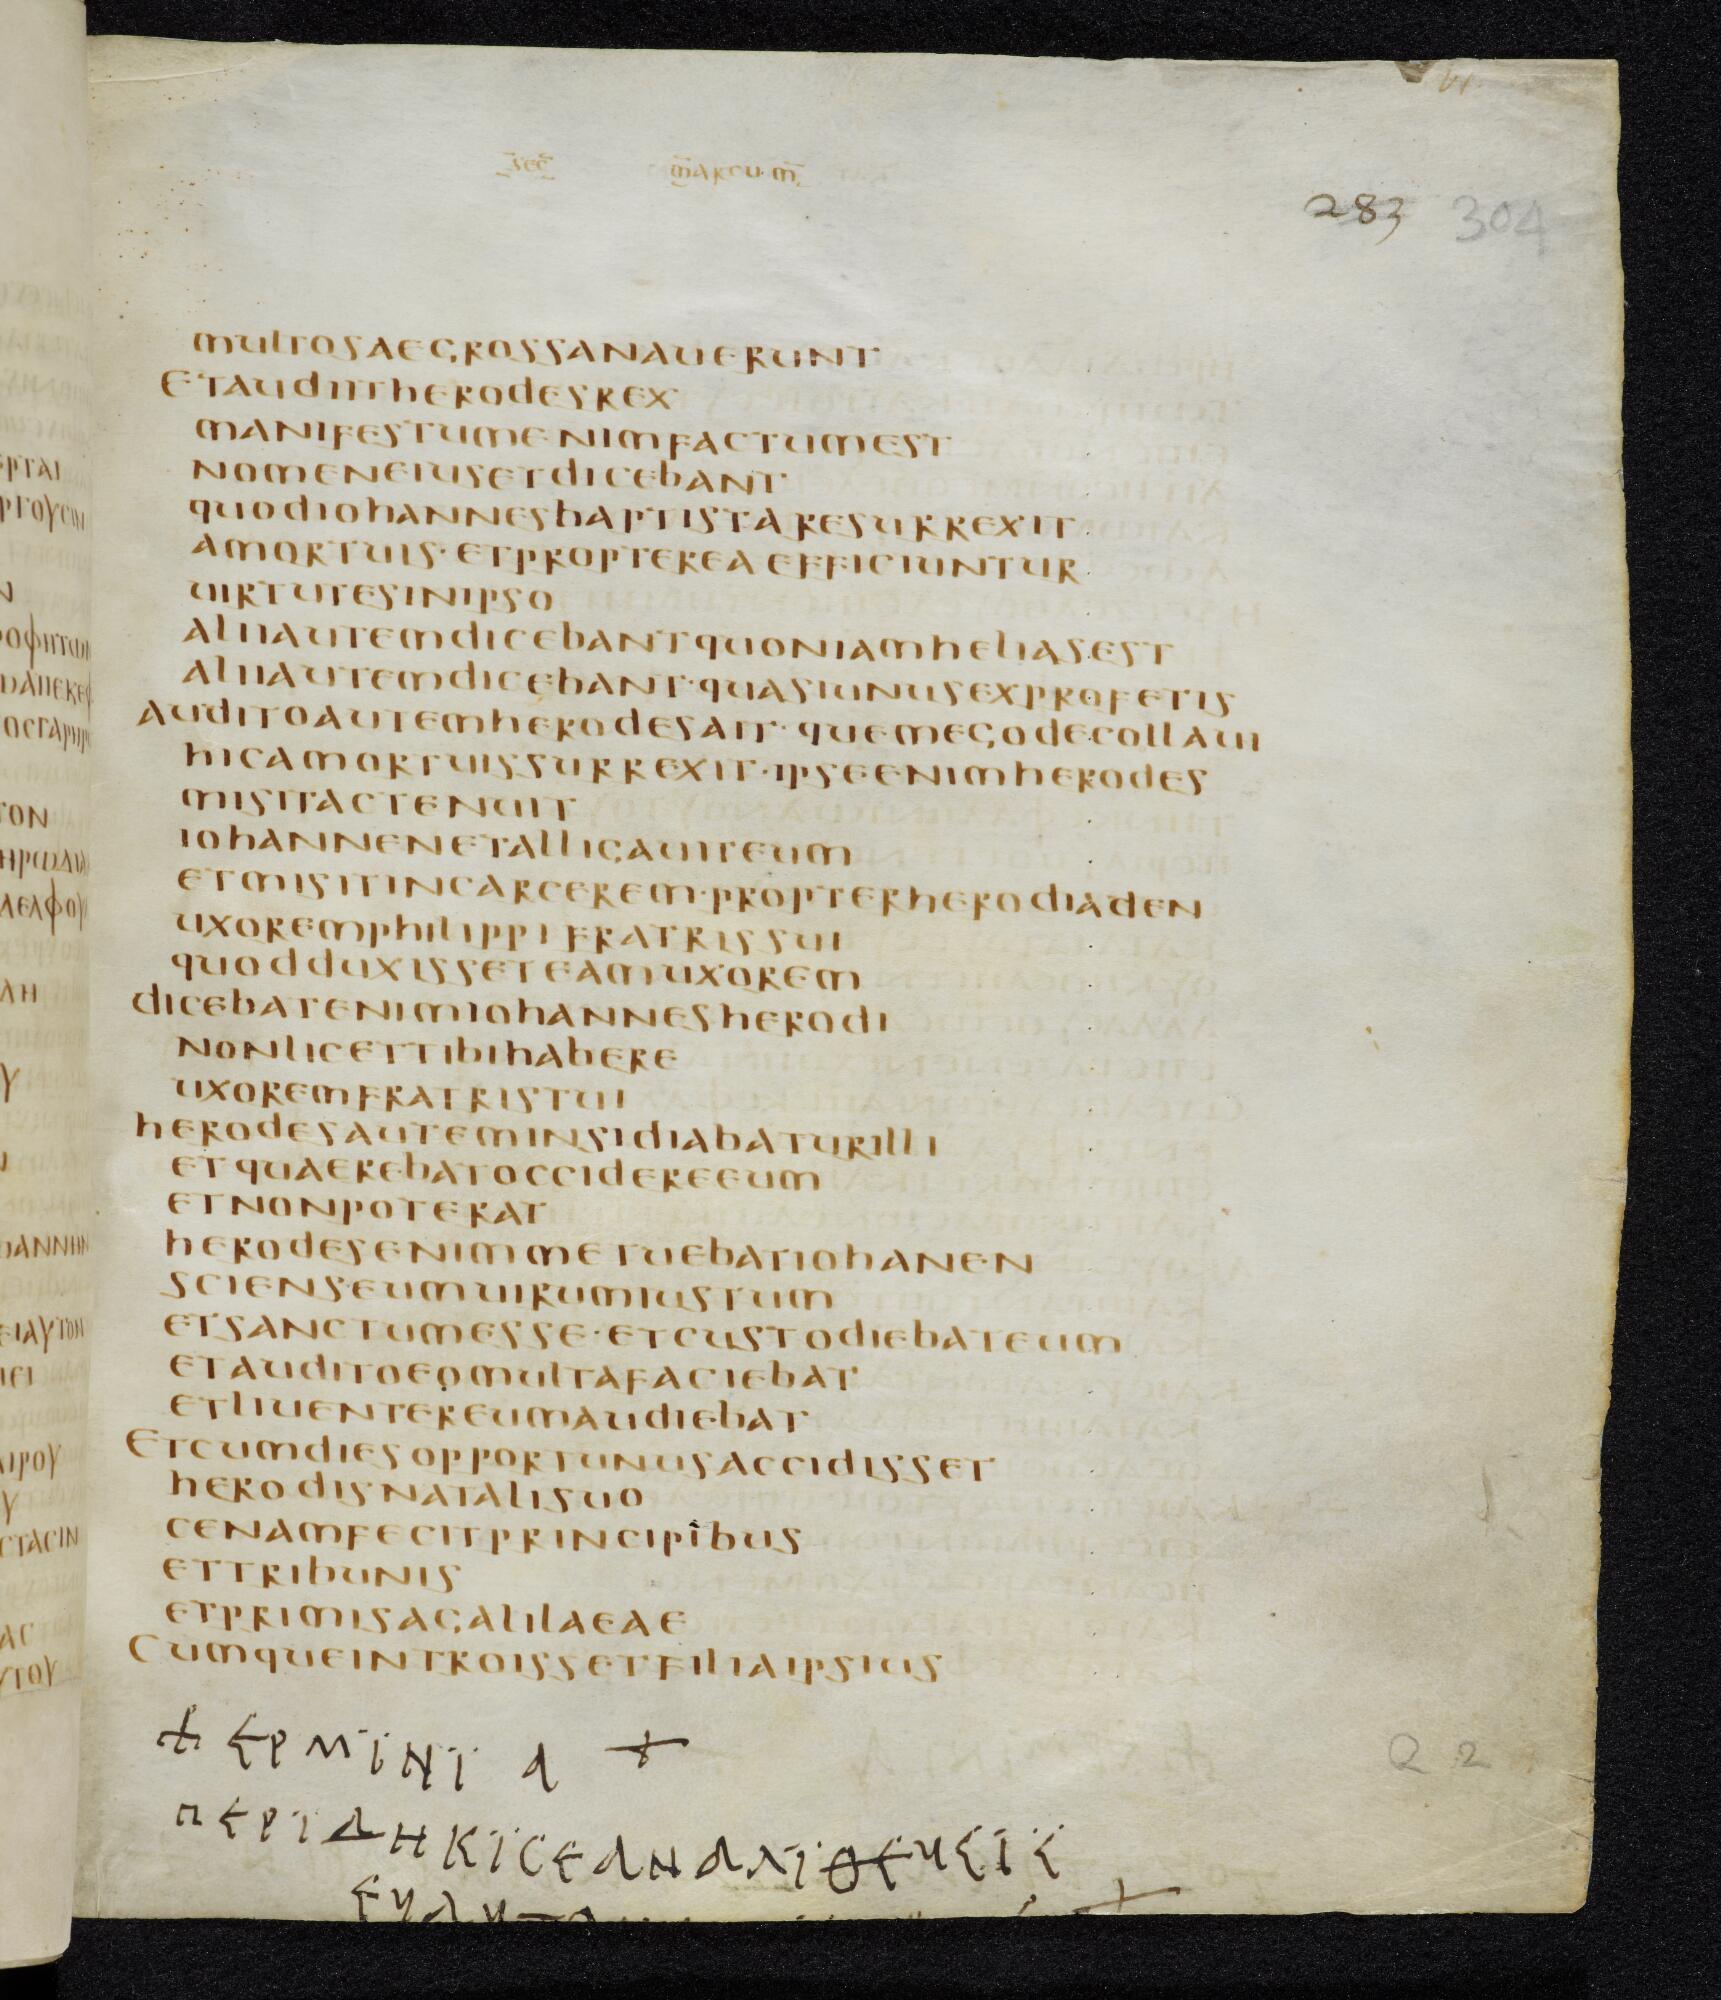 sec̅ m̅arcum̅
283 304
multosaegrossanauerunt
Etaudiitherodesrex
manifestumenimfactumest
nomeneiusetdicebant
quodiohannesbaptistaresurrexit
amortuis·etproptereaefficiuntur
uirtutesinipso
aliiautemdicebantquoniamheliasest
aliiautemdicebant·quasiunusexprofetis
auditoautemherodesait·quemegodecollaui
hicamortuissurrexit·ipseenimherodes
misitactenuit
iohannenetalligauiteum
etmisitincarcerem·propterherodiaden
uxoremphilippifratrissui
quodduxisseteamuxorem
dicebatenimiohannesherodi
nonlicettibihabere
uxoremfratristui
herodesauteminsidiabaturilli
etquaerebatoccidereeum
etnonpoterat
herodesenimmetuebatiohanen
scienseumuirumiustum
etsanctumesse·etcustodiebateum
etauditoeomultafaciebat
etliuentereumaudiebat
Etcumdiesopportunusaccidisset
herodisnatalisuo
cenamfecitprincipibus
ettribunis
etprimisagalilaeae
Cumqueintroissetfiliaipsius
+ ερμϊνϊ α +
περϊ δηκϊσεαναλϊθευσϊε
Q 2